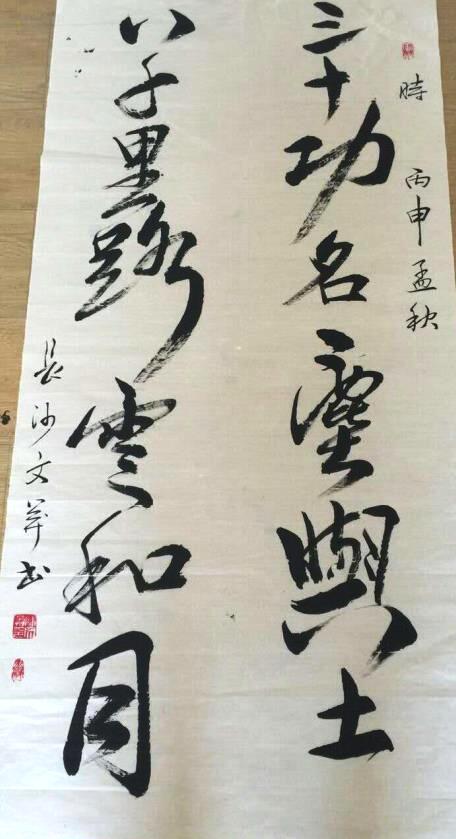 時 丙申孟秋
三十功名塵與土
八千里路雲和月
長沙文书